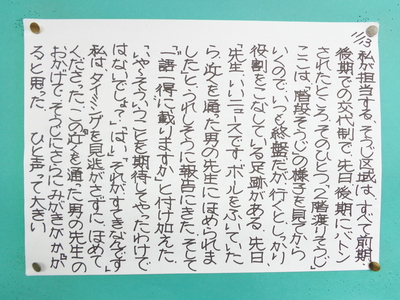 11/13
私が担当する、そうじ区域は、すべて前期、
後期での交代制で、先日後期にバトン
されたところ。そのひとつ「2階渡りそうじ」
ここは、階段そうじの様子を見てから
いくので、いつも終盤だが、行くとしっかり
役割をこなしている足跡がある。先日、
「先生、いいニュースです。ボルをふいていた
ら、近くを通った男の先生にほめられま
した」とうれしそうに報告にきた。そして
「『語一得』に載りますか」と付け加えた。
「いや~そういうことを期待してやったわけで
はないでしょ?」「はい」「それがすてきなんです」
私は、タイミングを見逃がさずに、ほめて
くださった、この近くを通った男の先生の
おかげで、そうじにさらにみがきがかか
ると思った。ひと声って大きい